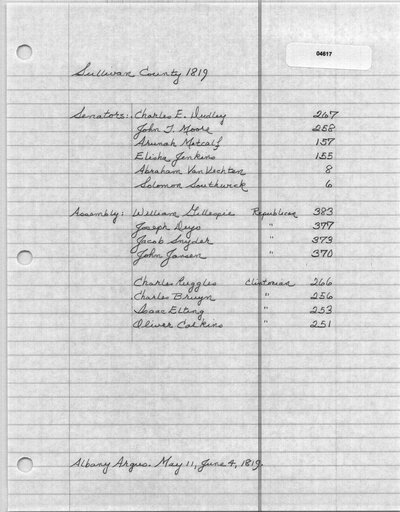 04617
Sullivan County 1819
Senators: Charles E. Dudley 267
John T. Moore 258
Arunah Metcalf 157
Elisha Jenkins 155
Abraham Van Vechten 8
Solomon Southwick 6
Assembly: William Gillespie Republican 383
Joseph Deyo " 377
Jacob Snyder " 373
John Jansen " 370
Charles Ruggles Clintonian 266
Charles Bruyn " 256
Isaac Elting " 253
Oliver Calkins " 251
Albany Argus. May 11, June 4, 1819.